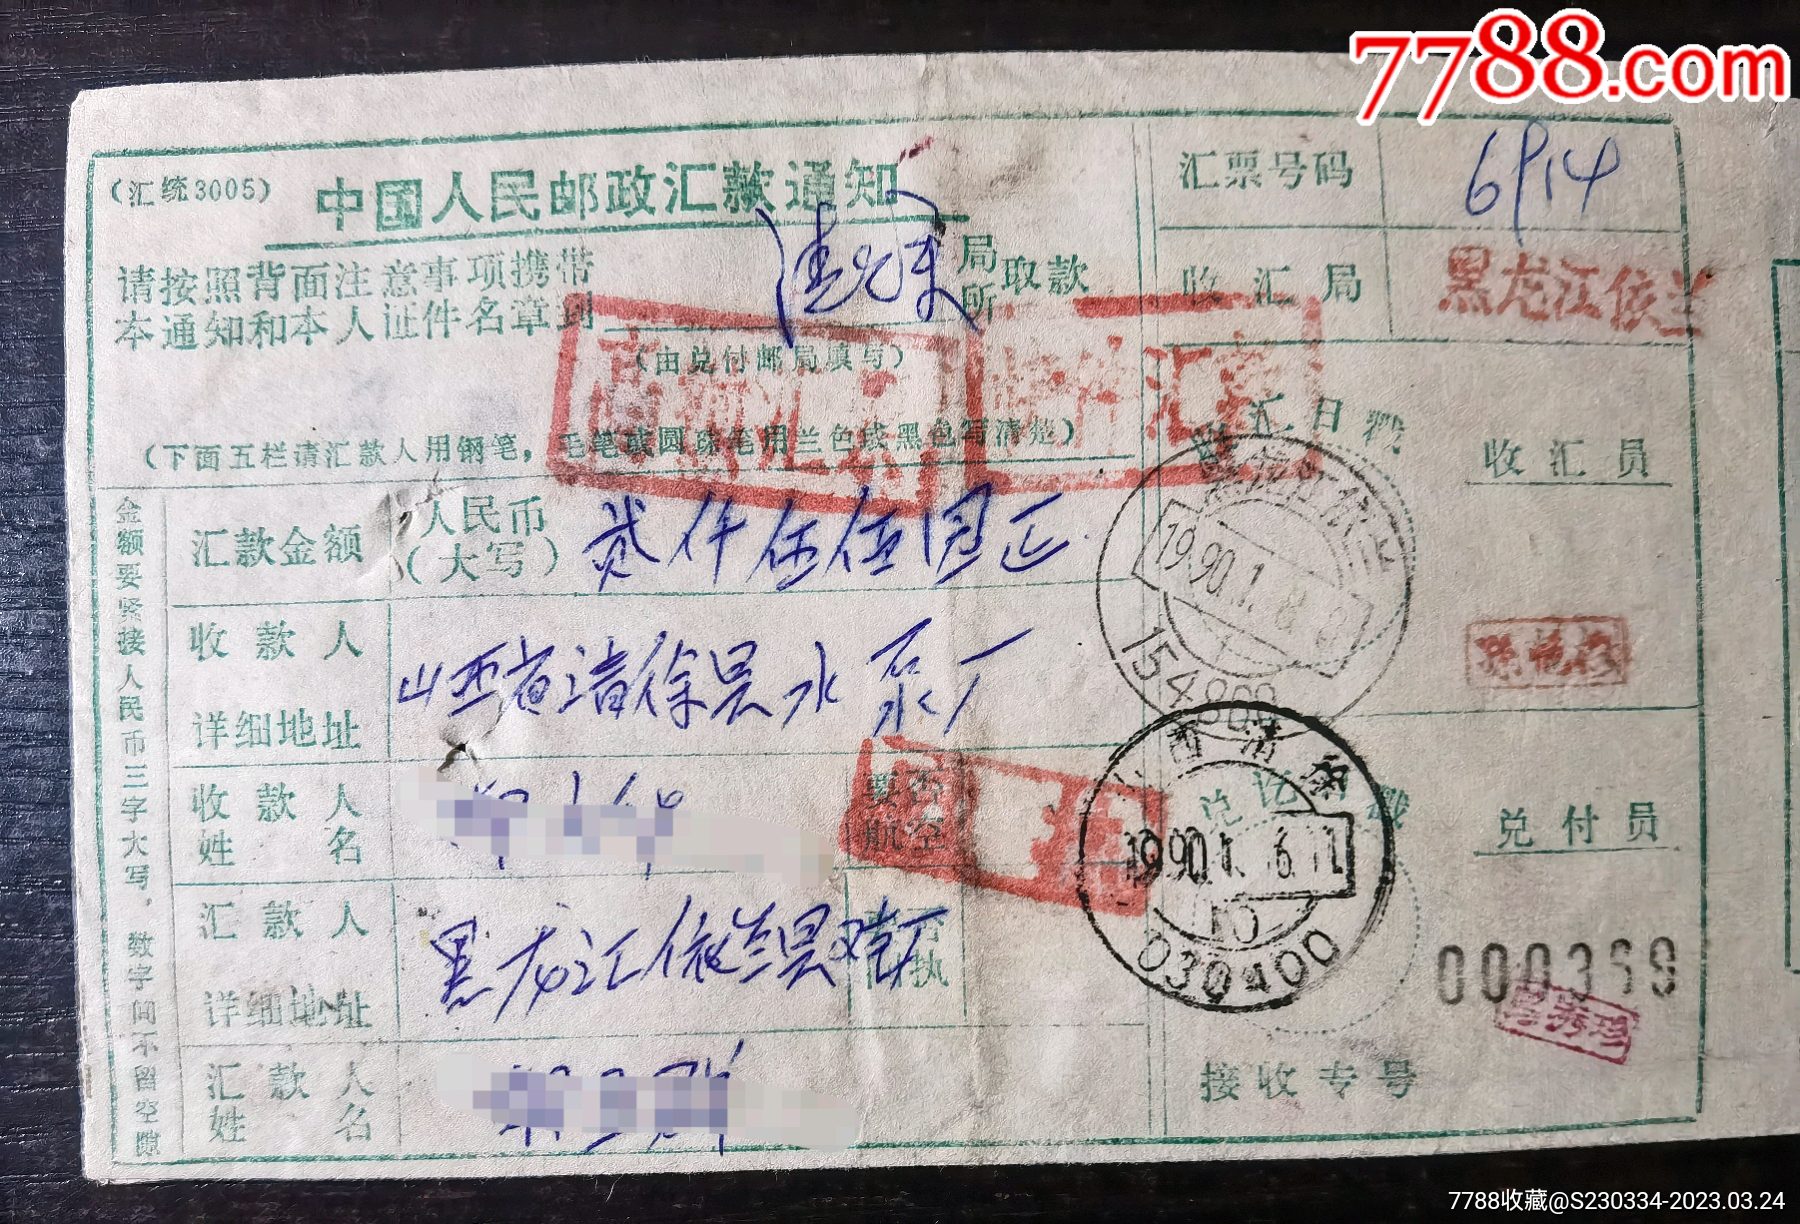 7788.com
(汇统3005)
中国人民邮政汇款通知
请按照背面注意事项携带
本通知和本人证件名章到
局
所
取款
(由兑付邮局填写)
(下面五栏请汇款人用钢笔,毛笔或圆珠笔用兰色或黑色写清楚)
汇票号码
6914
收汇局
黑龙江依兰
收汇日戳
收汇员
黑龙江依兰
1990.1.8.8
154800
金额要紧接人民币三字大写,数字间不留空隙
汇款金额
人民币
(大写)
贰仟伍佰圆正
收款人
详细地址
山西省清徐县水泵厂
收款人
姓名
要否
航空
汇款人
详细地址
黑龙江依兰县
回执
汇款人
姓名
山西清徐
1990.1.16.11
10
030400
兑讫日戳
兑付员
000369
接收专号
7788收藏@S230334-2023.03.24